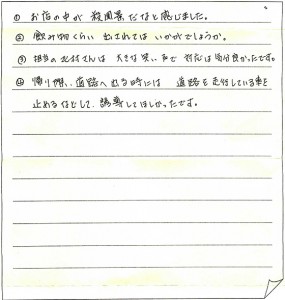 ① お店の中が殺風景だなと感じました。
② 飲み物くらい出されてはいかがでしょうか。
③ 担当の北村さんは 大きな笑い声で 対応は気分良かったです。
④ 帰り際、道路へ出る時には 道路を走行している車を
止めるなどして、誘導してほしかったです。